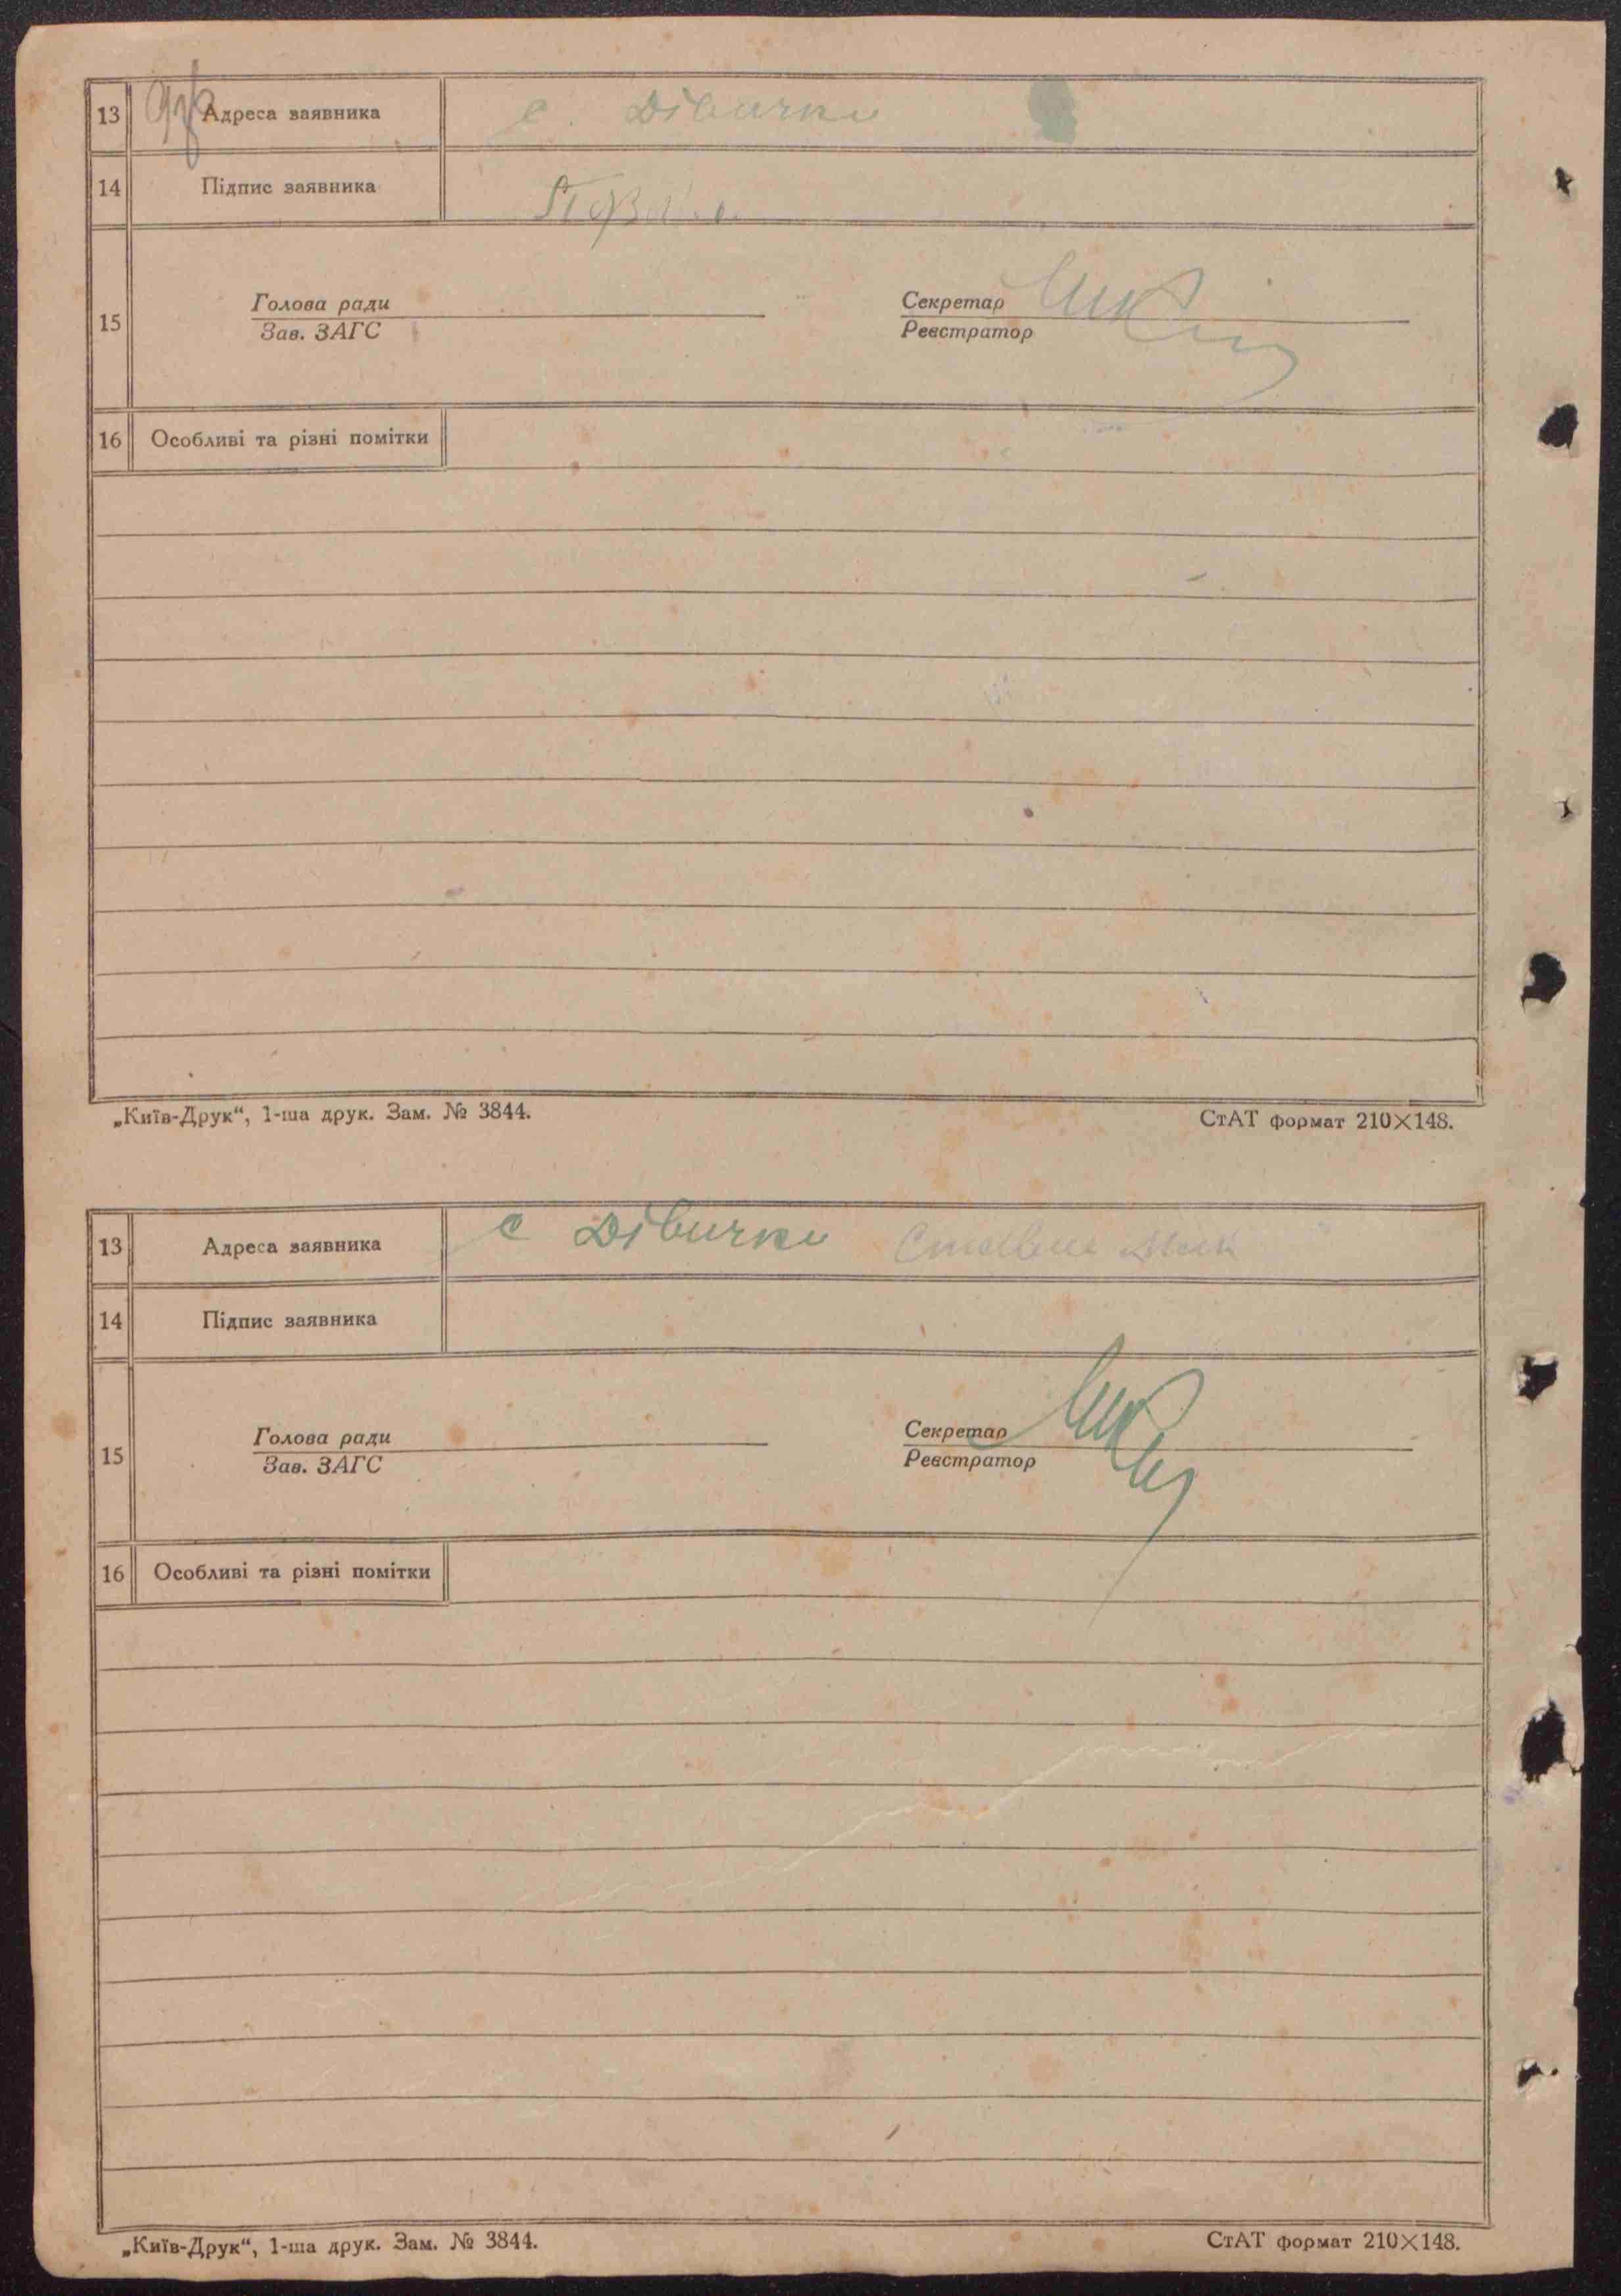 13 Адреса заявника с. Дівички
14 Підпис заявника
15 Голова ради Секретар
Зав. ЗАГС Реєстратор
16 Особливі та різні помітки
„Київ-Друк“, 1-ша друк. Зам. № 3844. СтАТ формат 210×148.
13 Адреса заявника с Дівички
14 Підпис заявника
15 Голова ради Секретар
Зав. ЗАГС Реєстратор
16 Особливі та різні помітки
„Київ-Друк“, 1-ша друк. Зам. № 3844. СтАТ формат 210×148.